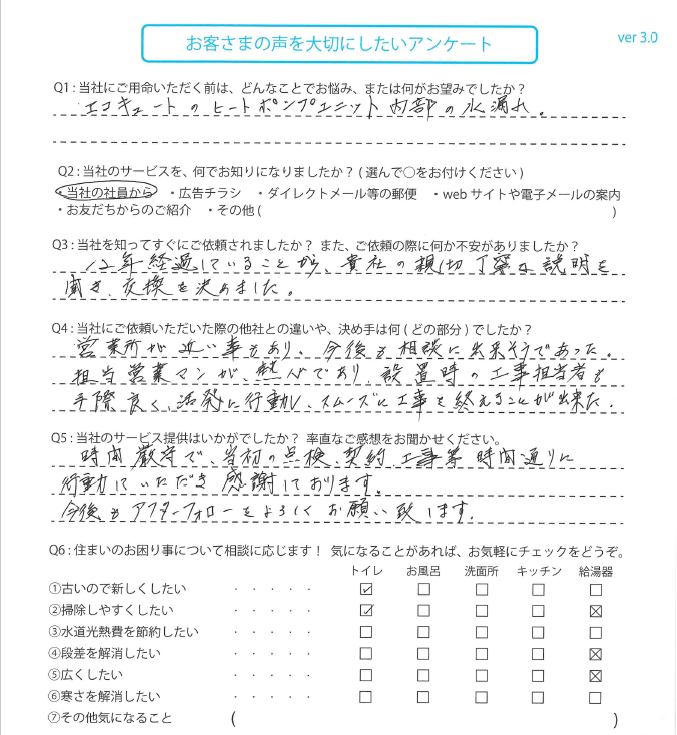 お客さまの声を大切にしたいアンケート
ver 3.0
Q1 : 当社にご用命いただく前は、どんなことでお悩み、または何がお望みでしたか？
エコキュートのヒートポンプユニット内部の水漏れ。
Q2 : 当社のサービスを、何でお知りになりましたか？ ( 選んで○をお付けください )
・当社の社員から ・広告チラシ ・ダイレクトメール等の郵便 ・web サイトや電子メールの案内
・お友だちからのご紹介 ・その他 ( )
Q3 : 当社を知ってすぐにご依頼されましたか？ また、ご依頼の際に何か不安がありましたか？
12年経過していることから、貴社の親切丁寧な説明を
聞き、交換を決めました。
Q4 : 当社にご依頼いただいた際の他社との違いや、決め手は何 ( どの部分 ) でしたか？
営業所が近い事もあり、今後も相談に出来そうであった。
担当営業マンが、熱心であり、設置時の工事担当者も
手際良く、活発に行動し、スムーズに工事を終えることが出来た.
Q5 : 当社のサービス提供はいかがでしたか？ 率直なご感想をお聞かせください。
時間厳守で、当初の点検、契約、工事等時間通りに
行動していただき感謝しております。
今後もアフターフォローをよろしくお願い致します.
Q6 : 住まいのお困り事について相談に応じます！ 気になることがあれば、お気軽にチェックをどうぞ。
トイレ お風呂 洗面所 キッチン 給湯器
①古いので新しくしたい ・・・・・ ☑ □ □ □ □
②掃除しやすくしたい ・・・・・ ☑ □ □ □ ☒
③水道光熱費を節約したい ・・・・・ □ □ □ □ □
④段差を解消したい ・・・・・ □ □ □ □ ☒
⑤広くしたい ・・・・・ □ □ □ □ ☒
⑥寒さを解消したい ・・・・・ □ □ □ □ □
⑦その他気になること ( )